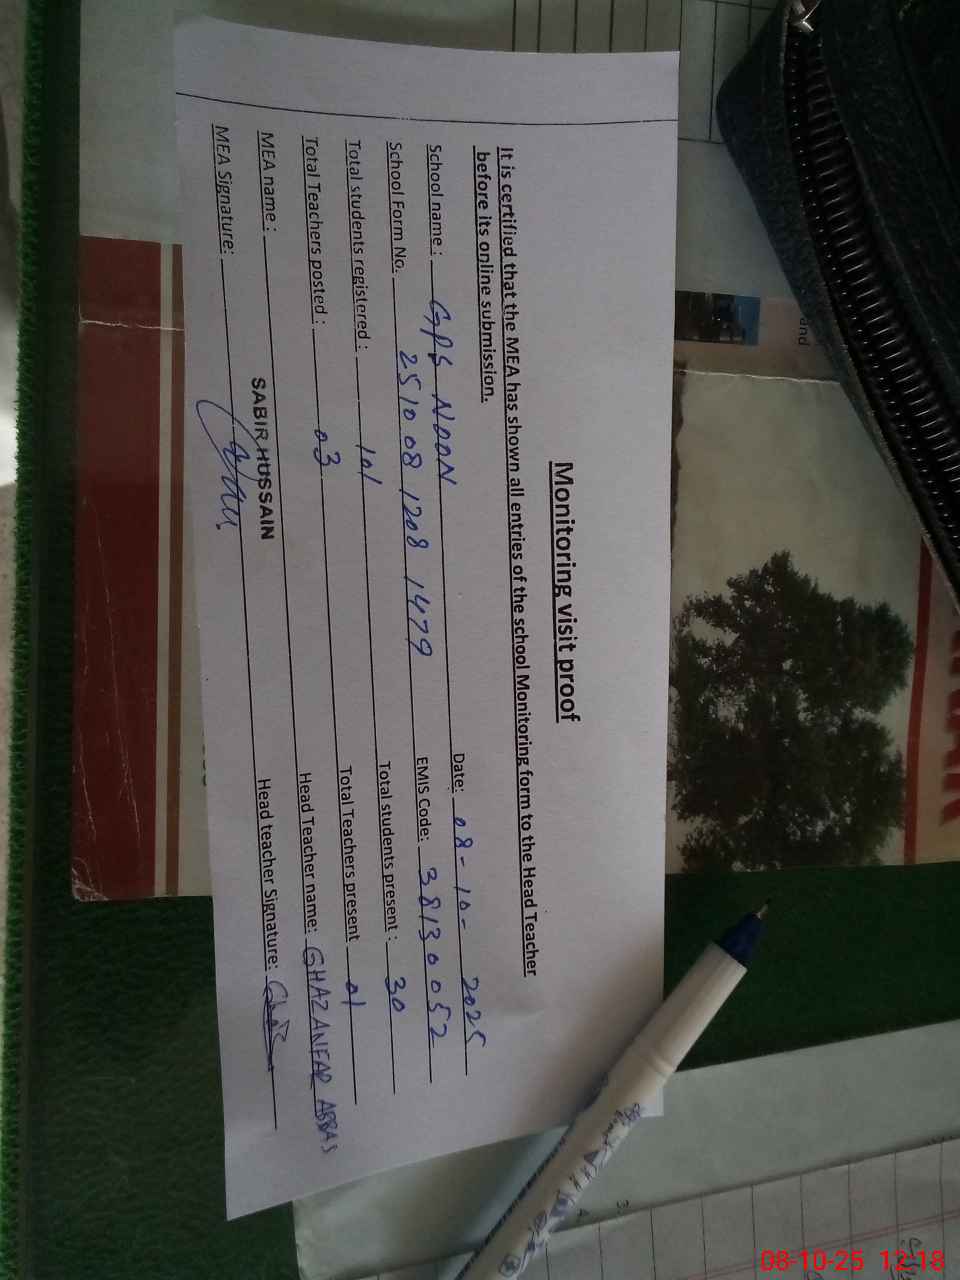 Monitoring visit proof
It is certified that the MEA has shown all entries of the school Monitoring form to the Head Teacher
before its online submission.
School name : GPS NOON Date: 08-10-2025
School Form No. 251008 1208 1479 EMIS Code: 38130052
Total students registered : 101 Total students present : 30
Total Teachers posted : 03 Total Teachers present 01
MEA name : SABIR HUSSAIN Head Teacher name: GHAZANFAR ABBAS
MEA Signature: Head teacher Signature:
and
08-10-25 12:18